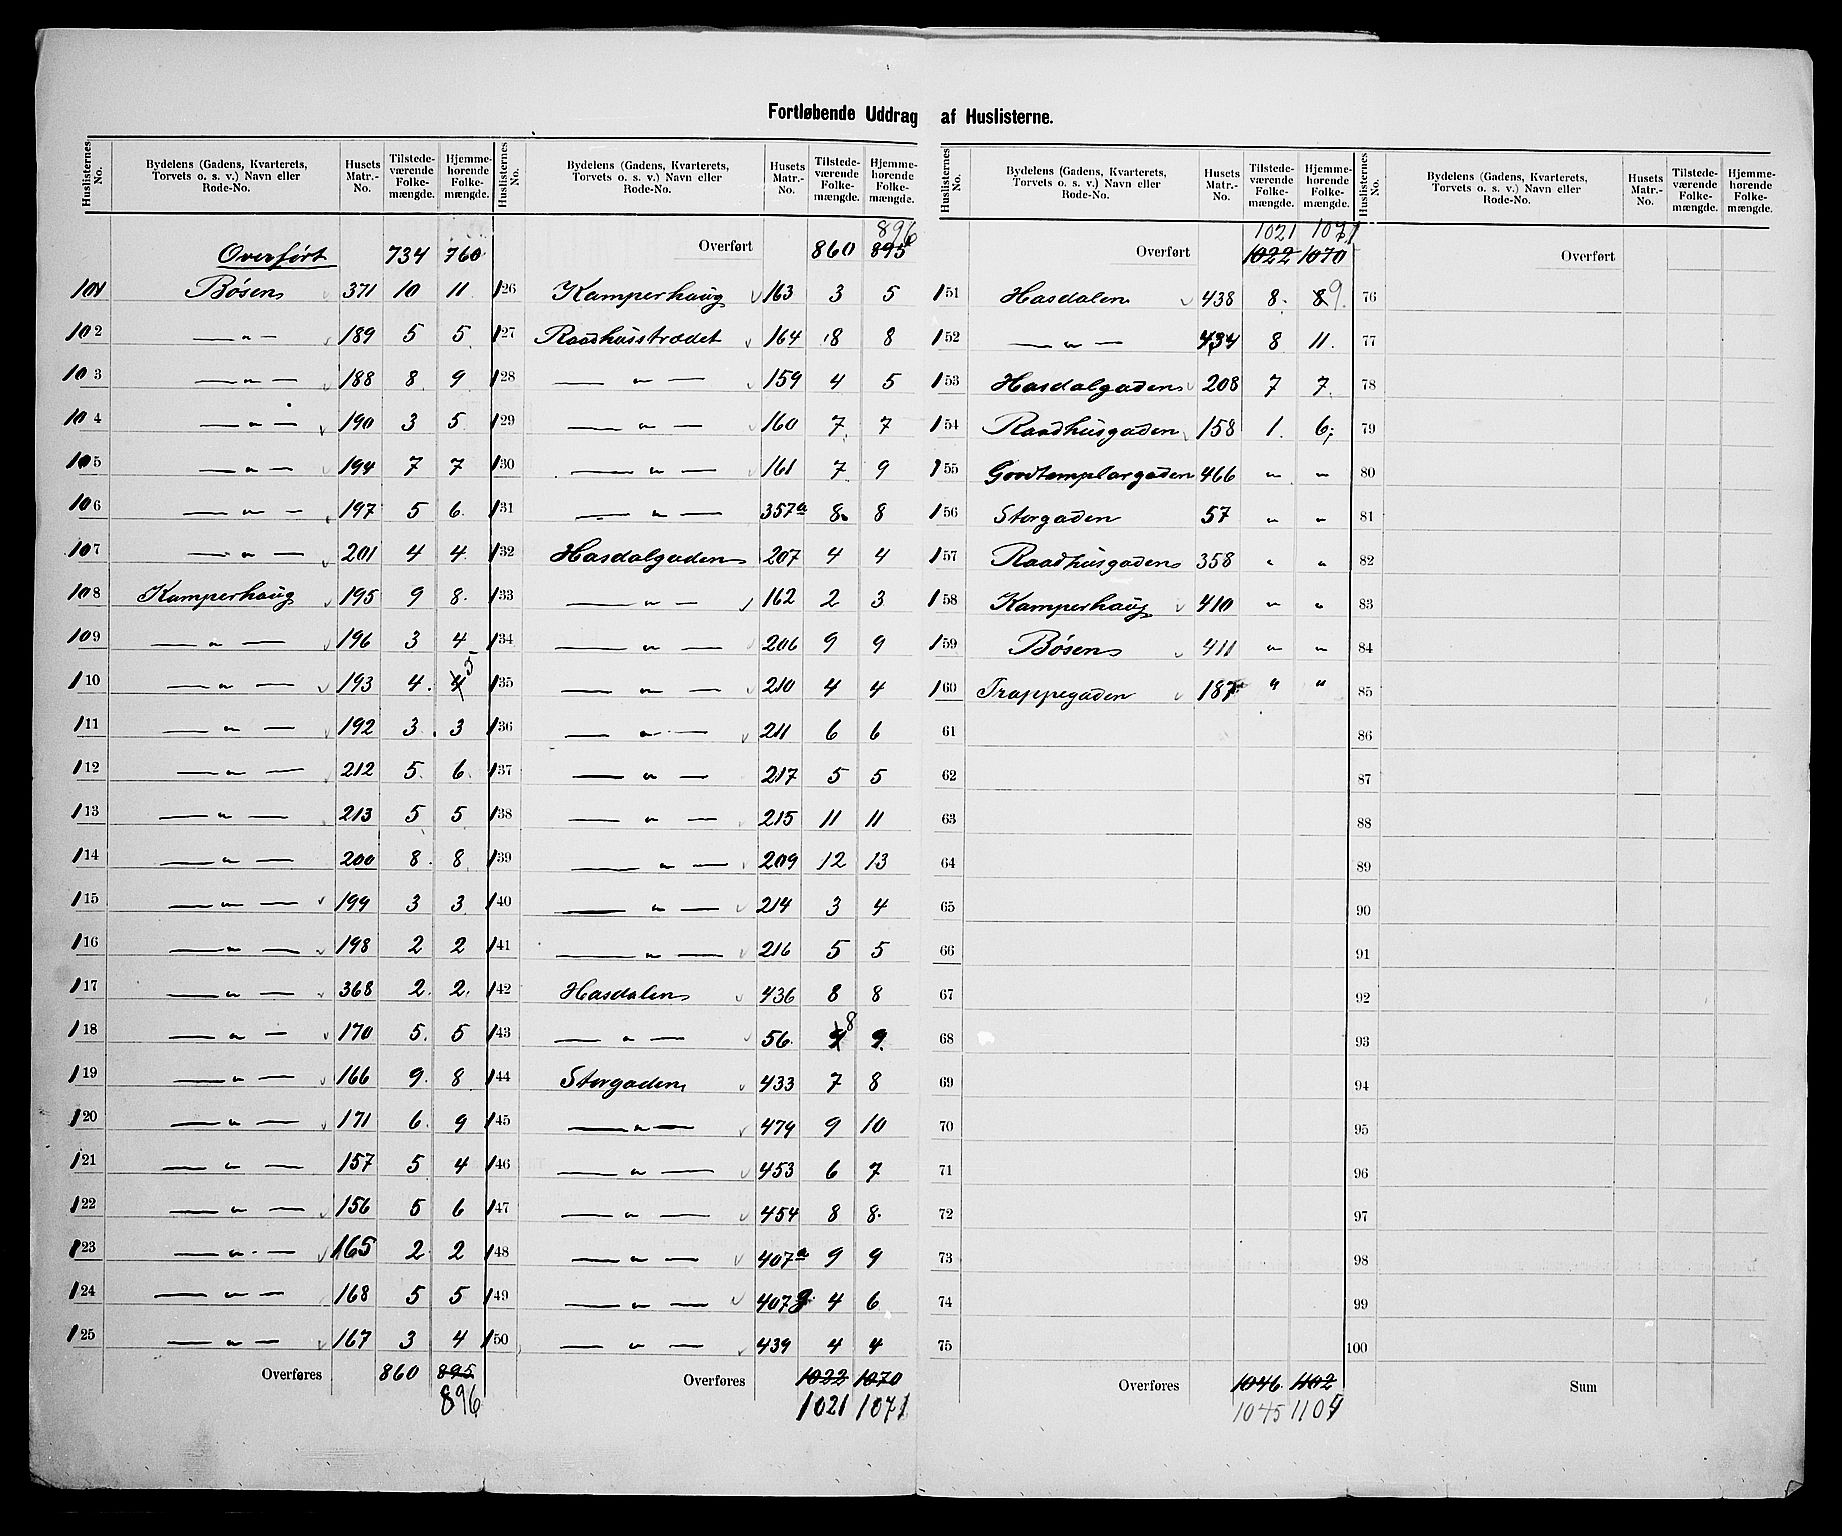 Fortløbende Uddrag af Huslisterne.
Huslisternes No. Bydelens (Gadens, Kvarterets, Torvets o. s. v.) Navn eller Rode-No. Husets Matr.-No. Tilstedeværende Folkemængde. Hjemmehørende Folkemængde.
Overført 734 760
101 Bøsen 371 10 11
102 — " — 189 5 5
103 — " — 188 8 9
104 — " — 190 3 5
105 — " — 194 7 7
106 — " — 197 5 6
107 — " — 201 4 4
108 Kamperhaug 195 9 8
109 — " — 196 3 4
110 — " — 193 4 4 5
111 — " — 192 3 3
112 — " — 212 5 6
113 — " — 213 5 5
114 — " — 200 8 8
115 — " — 199 3 3
116 — " — 198 2 2
117 — " — 368 2 2
118 — " — 170 5 5
119 — " — 166 9 8
120 — " — 171 6 9
121 — " — 157 5 4
122 — " — 156 5 6
123 — " — 165 2 2
124 — " — 168 5 5
125 — " — 167 3 4
Overføres 860 895
896
Huslisternes No. Bydelens (Gadens, Kvarterets, Torvets o. s. v.) Navn eller Rode-No. Husets Matr.-No. Tilstedeværende Folkemængde. Hjemmehørende Folkemængde.
896
Overført 860 895
126 Kamperhaug 163 3 5
127 Raadhusstrædet 164 8 8
128 — " — 159 4 5
129 — " — 160 7 7
130 — " — 161 7 9
131 — " — 357a 8 8
132 Hasdalgaden 207 4 4
133 — " — 162 2 3
134 — " — 206 9 9
135 — " — 210 4 4
136 — " — 211 6 6
137 — " — 217 5 5
138 — " — 215 11 11
139 — " — 209 12 13
140 — " — 214 3 4
141 — " — 216 5 5
142 Hasdalen 436 8 8
143 — " — 56 9 8 9
144 Storgaden 433 7 8
145 — " — 479 9 10
146 — " — 453 6 7
147 — " — 454 8 8
148 — " — 407a 9 9
149 — " — 407 4 6
150 — " — 439 4 4
Overføres 1022 1070
1021 1071
Huslisternes No. Bydelens (Gadens, Kvarterets, Torvets o. s. v.) Navn eller Rode-No. Husets Matr.-No. Tilstedeværende Folkemængde. Hjemmehørende Folkemængde.
1021 1071
Overført 1022 1070
151 Hasdalen 438 8 8 9
152 — " — 434 8 11
153 Hasdalgaden 208 7 7
154 Raadhusgaden 158 1 6
155 Goodtemplargaden 466 " "
156 Storgaden 57 " "
157 Raadhusgaden 358 " "
158 Kamperhaug 410 " "
159 Bøsen 411 " "
160 Trappegaden 187 " "
61
62
63
64
65
66
67
68
69
70
71
72
73
74
75
Overføres 1046 1102
1045 1104
Huslisternes No. Bydelens (Gadens, Kvarterets, Torvets o. s. v.) Navn eller Rode-No. Husets Matr.-No. Tilstedeværende Folkemængde. Hjemmehørende Folkemængde.
Overført
76
77
78
79
80
81
82
83
84
85
86
87
88
89
90
91
92
93
94
95
96
97
98
99
100
Sum